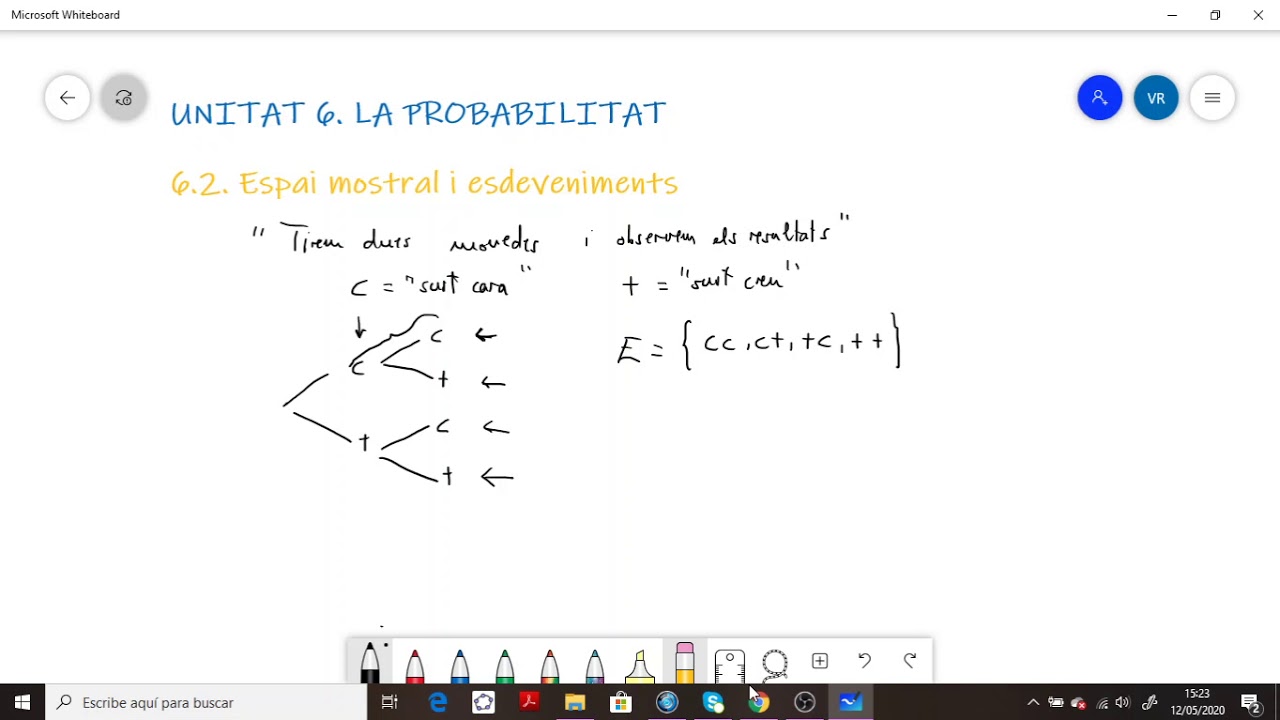 Microsoft Whiteboard
VR
UNITAT 6. LA PROBABILITAT
6.2. Espai mostral i esdeveniments
" Tirem dues monedes i observem els resultats"
C = "surt cara" + = "surt creu"
E = { CC, C+, +C, ++ }
C ←
C
+ ←
C ←
+
+ ←
Escribe aquí para buscar
15:23
12/05/2020
2